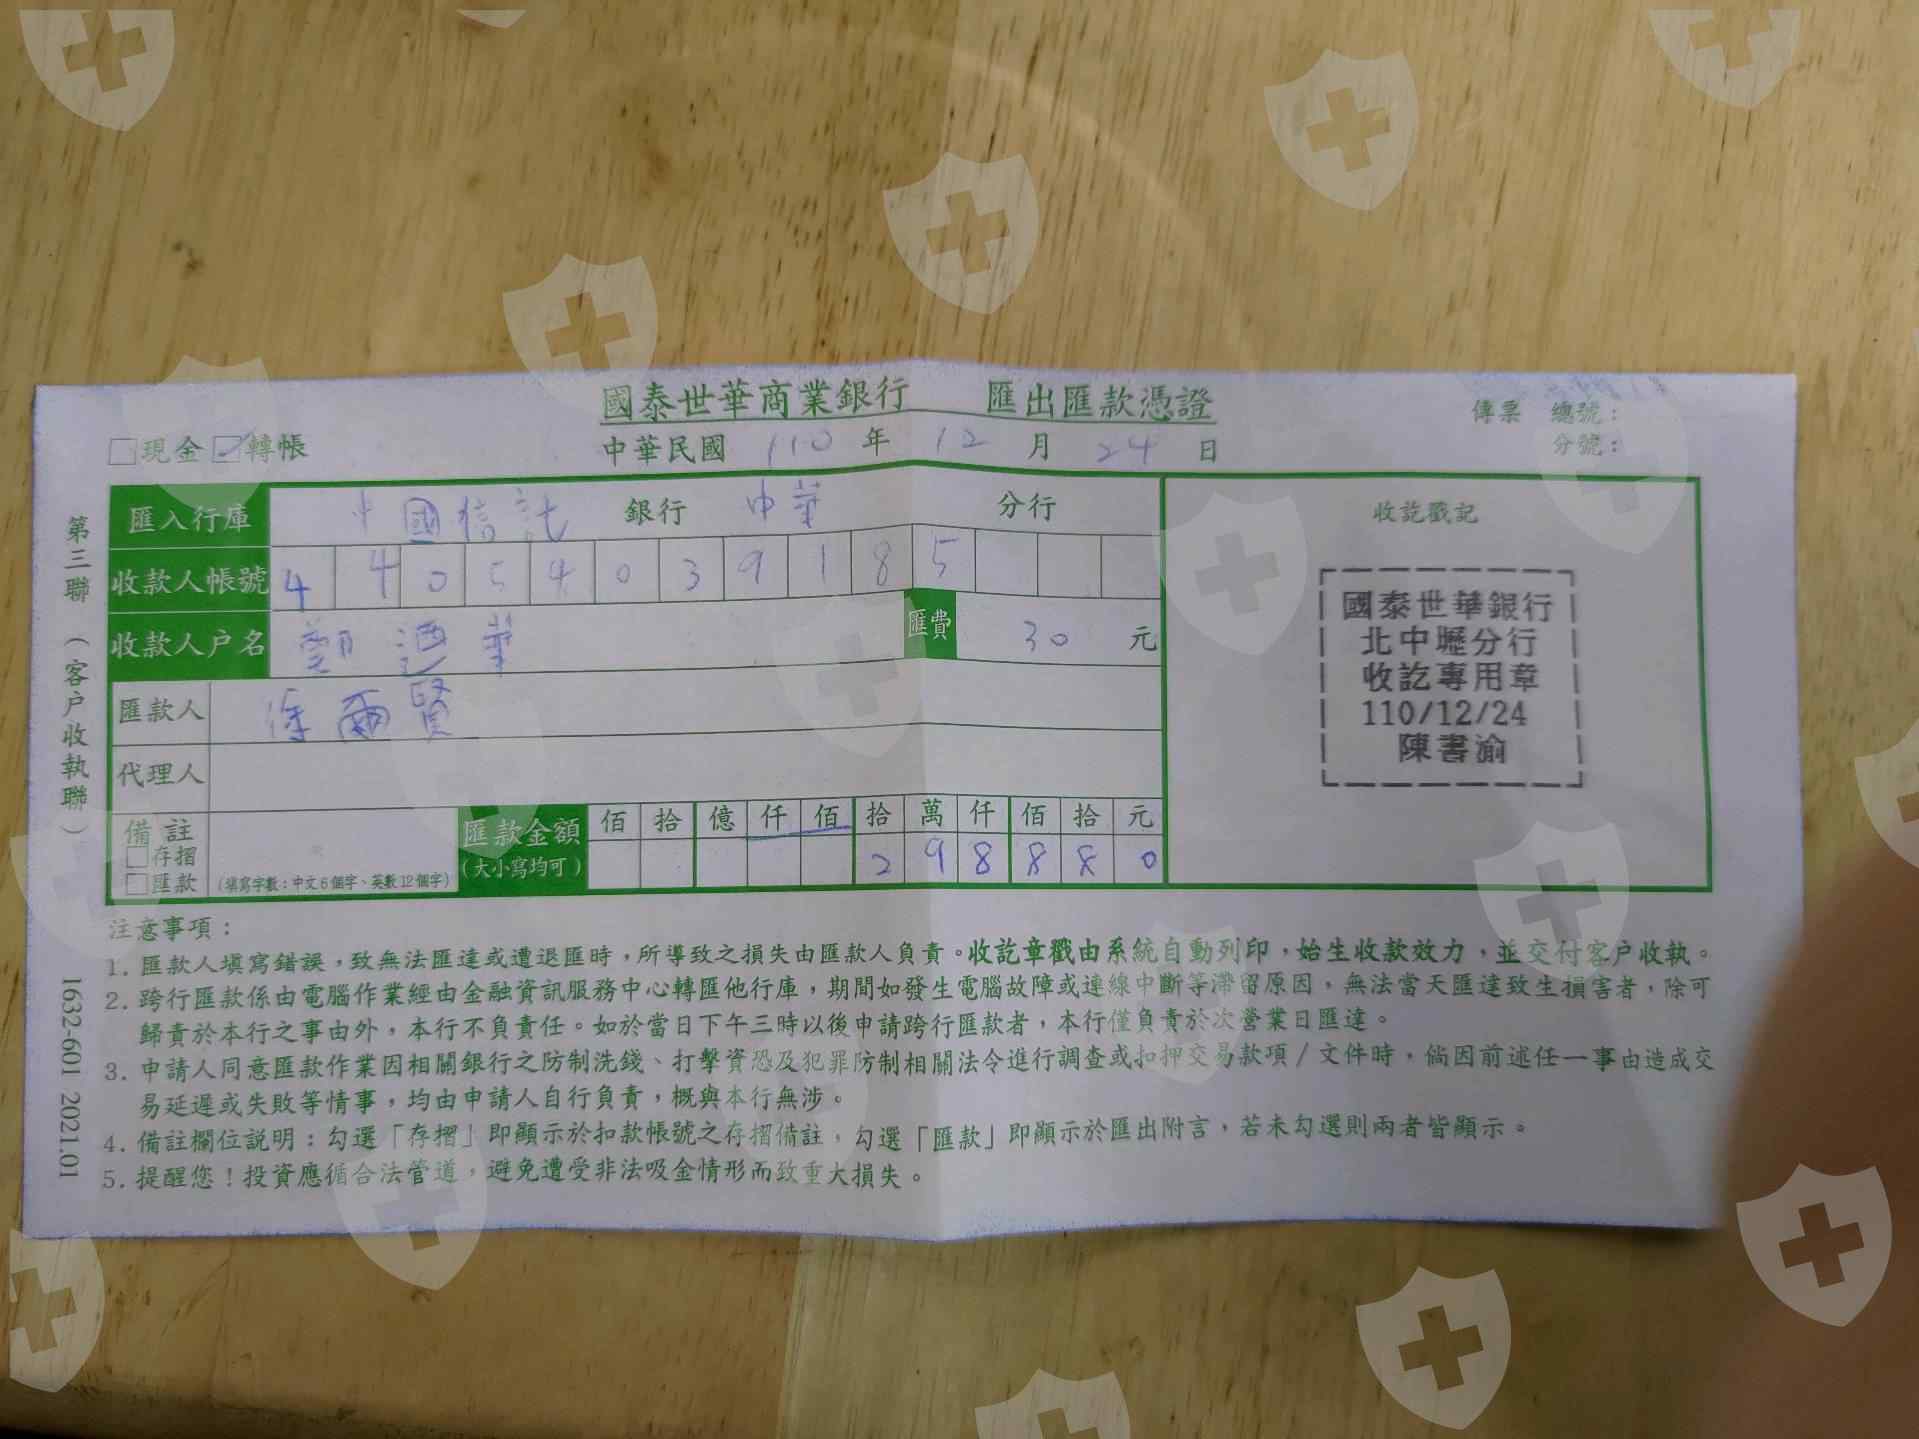 國泰世華商業銀行 匯出匯款憑證
傳票 總號：
分號：
□現金 ☑轉帳
中華民國 110 年 12 月 24 日
匯入行庫 中國信託 銀行 中華 分行
收訖戳記
收款人帳號 44054039185
收款人户名 華
匯費 30 元
匯款人 爾賢
代理人
備註
□存摺
□匯款
(填寫字數：中文6個字、英數12個字)
匯款金額
(大小寫均可)
佰 拾 億 仟 佰 拾 萬 仟 佰 拾 元
2 9 8 8 8 0
國泰世華銀行
北中壢分行
收訖專用章
110/12/24
陳書渝
第三聯（客户收執聯）
1632-601 2021.01
注意事項：
1. 匯款人填寫錯誤，致無法匯達或遭退匯時，所導致之損失由匯款人負責。收訖章戳由系統自動列印，始生收款效力，並交付客户收執。
2. 跨行匯款係由電腦作業經由金融資訊服務中心轉匯他行庫，期間如發生電腦故障或連線中斷等滯留原因，無法當天匯達致生損害者，除可
歸責於本行之事由外，本行不負責任。如於當日下午三時以後申請跨行匯款者，本行僅負責於次營業日匯達。
3. 申請人同意匯款作業因相關銀行之防制洗錢、打擊資恐及犯罪防制相關法令進行調查或扣押交易款項/文件時，倘因前述任一事由造成交
易延遲或失敗等情事，均由申請人自行負責，概與本行無涉。
4. 備註欄位說明：勾選「存摺」即顯示於扣款帳號之存摺備註，勾選「匯款」即顯示於匯出附言，若未勾選則兩者皆顯示。
5. 提醒您！投資應循合法管道，避免遭受非法吸金情形而致重大損失。